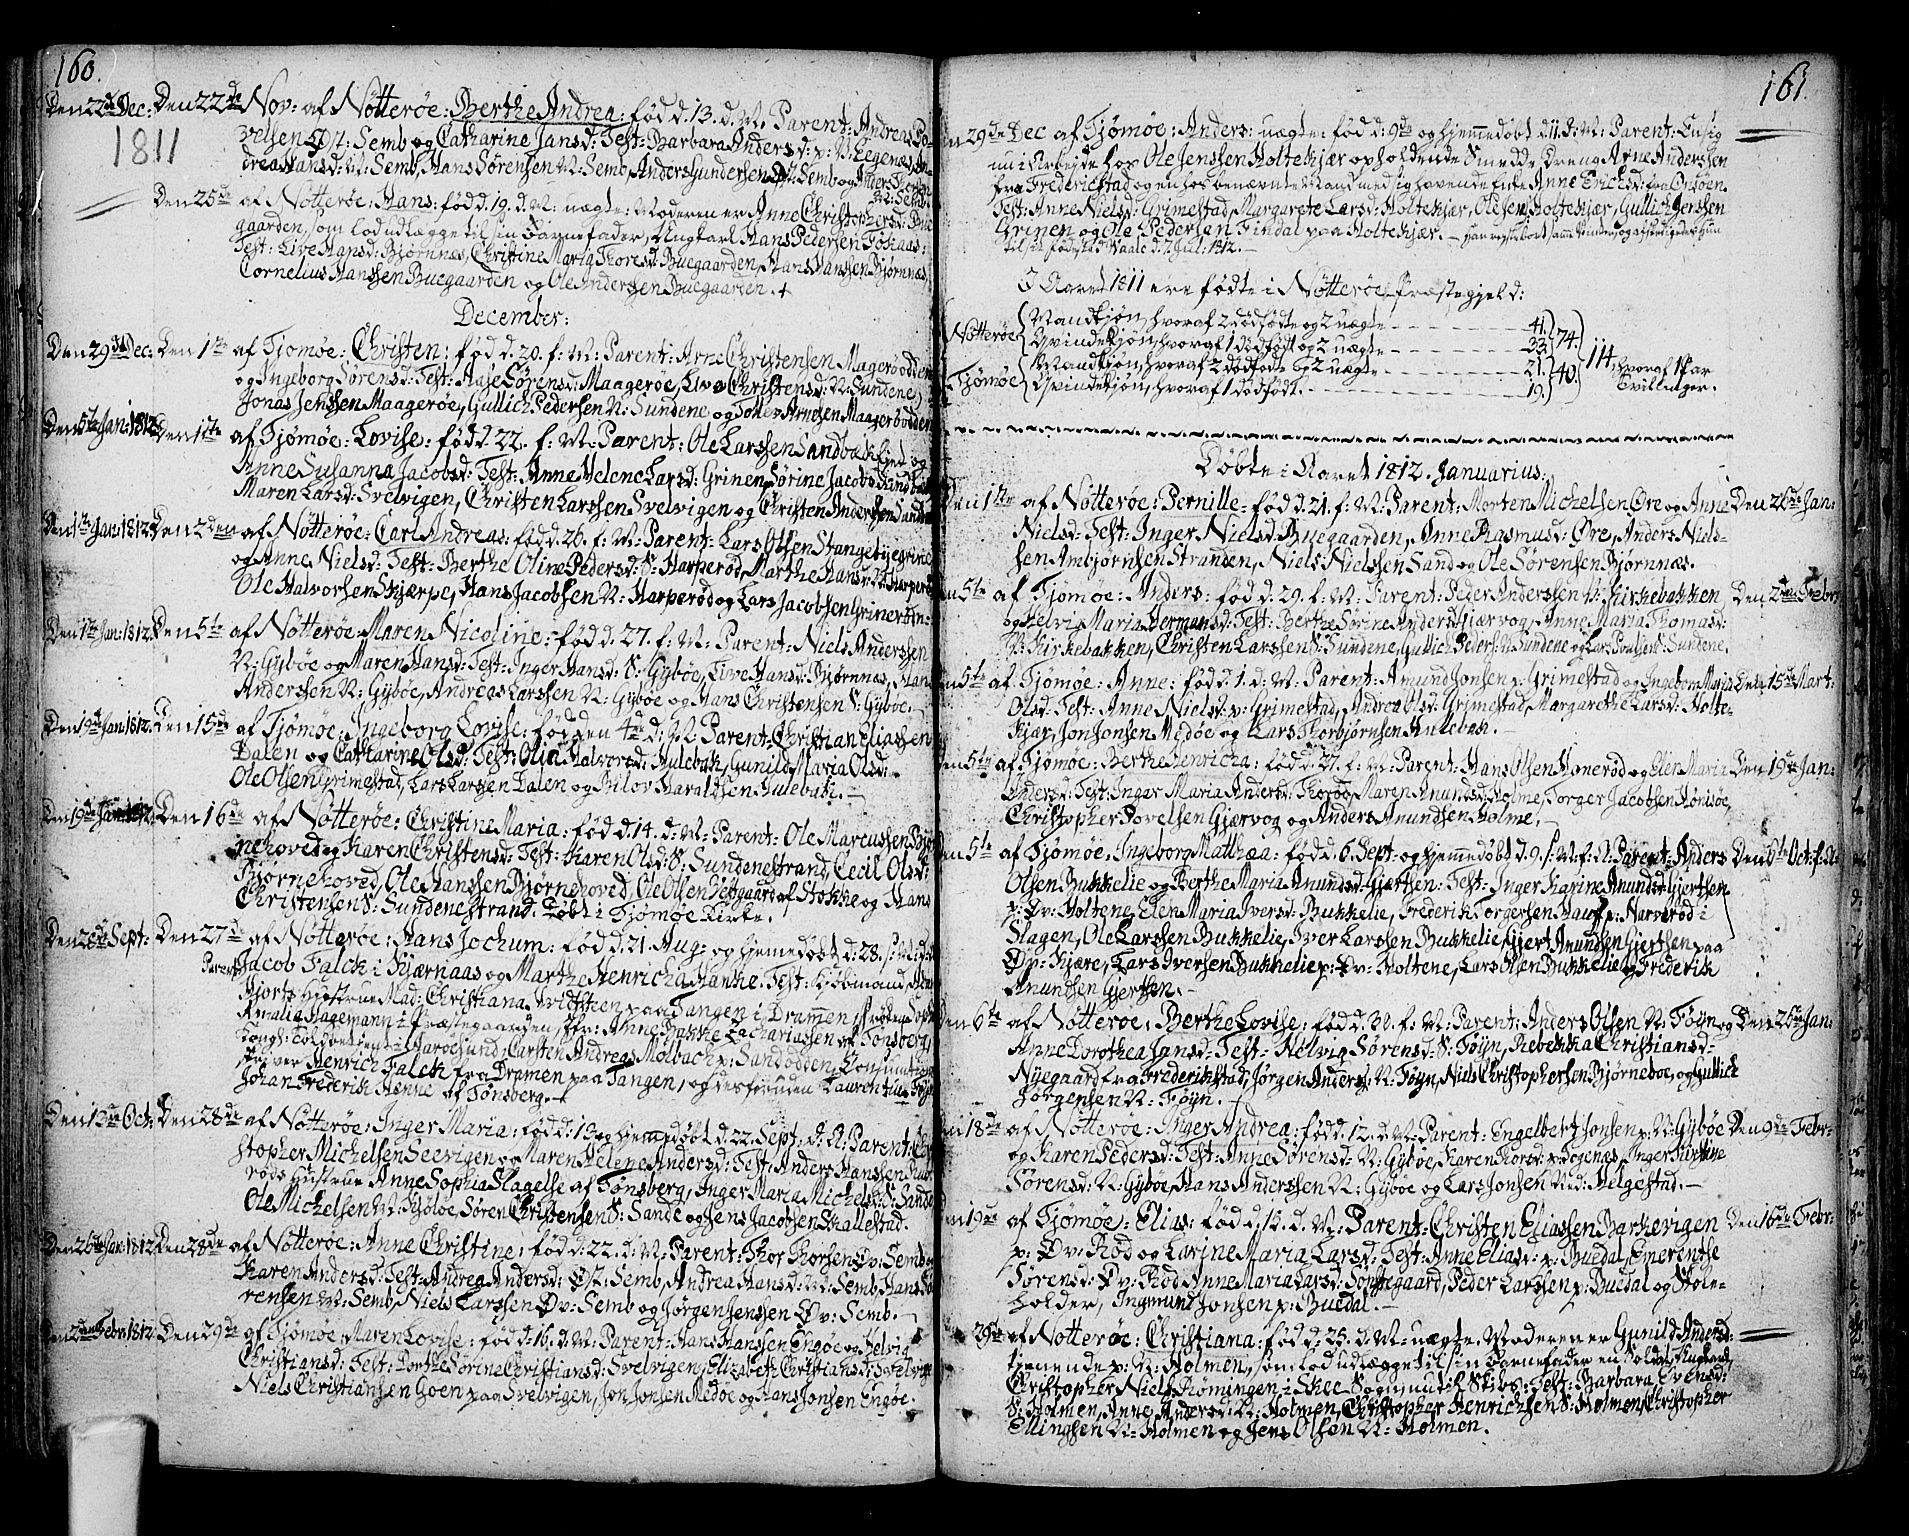 160.
Den 22de Dec: Den 22de Nov: af Nötteröe: Berthe Andrea: föd d. 13. d. M. Parent: Andreas
1811
velsen Semb og Catharine Jansd: Test: Barbara Andersd: p: N:
dreas Hansd: N: Semb, Hans Sörensen N: Semb, Anders Gundersen Semb og Anders
Den 25de af Nötteröe: Hans: föd d. 19. d. M: uægte: Moderen er Anne Christophersd: Bue
gaarden, som lod udlægge til sin Barnefader, Ungkarl Hans Pedersen Foskaas:
Test: Live Hansd: Bjørnnæs, Christine Maria Thoresd: Buegaarden, Hans Hanssen Bjørnnæs,
Cornelius Hanssen Buegaarden og Ole Anderssen Buegaarden. +
December:
Den 29de Dec: Den 1ste af Tjömöe: Christen: föd d. 20. f: M: Parent: Arne Christensen Mageröodden
og Ingeborg Sörensd: Test: Aase Sörensd: Maageröe, Live Christensd: N: Sundene,
Jonas Jenssen Maageröe, Gullich Pedersen N: Sundene og Arnesen Maageröodden
Den 5te Jan: 1812 Den 1ste af Tjömöe: Lovise: föd d. 22. f: M: Parent: Ole Larssen Sandbækkjet og
Anne Susanna Jacobsd: Test: Anne Helene Larsd: Grinen, Sörine Jacobsd:
Maren Larsd: Svelvigen, Christen Larssen Svelvigen og Christen Anderssen
Den 1ste Jan: 1812. Den 2den af Nötteröe: Carl Andreas: föd d. 26. f: M: Parent: Lars Olsen Stangebye
og Anne Nielsd: Test: Berthe Oline Pedersd: S: Harperöd, Marthe Hansd: N: Harperöd
Ole Halvorsen Skjærpe, Hans Jacobsen N: Harperöd og Lars Jacobsen
Den 1ste Jan: 1812. Den 5te af Nötteröe: Maren Nicoline: föd d. 27. f: M: Parent: Niels Anderssen
N: Gyböe og Maren Hansd: Test: Inger Hansd: S: Gyböe, Live Hansd: Bjørnnæs,
Anderssen N: Gyböe, Andreas Larssen N: Gyböe og Hans Christensen S: Gyböe.
Den 19de Jan: 1812. Den 15de af Tjömöe: Ingeborg Lovise: föd den 4de d: M. Parent: Christian Eliassen
Dalen og Catharine Olsd: Test: Olia Halvorsd: Hulebak, Gunild Maria Olsd:
Ole Olsen Grimestad, Lars Larssen Dalen og Haraldsen Hulebak.
Den 19de Jan: 1812. Den 16de af Nötteröe: Christine Maria: föd d. 14. d: M: Parent: Ole Marcussen Björ
nehoved og Karen Christensd: Test: Karen Olsd: S: Sundenestrand, Cecil Olsd:
Bjørnehoved, Ole Hanssen Bjørnehoved, Ole Olsen af Stokke og Hans
Christensen S: Sundenestrand. Döbt i Tjömöe Kirke.
Den Sept: Den 27de af Nötteröe: Hans Jochum: föd d. 21. Aug: og hjemmedöbt d: 28.
Parent: Jacob Falck i Kjærnaas og Marthe Henricha Hanke: Test: Kjöbmand
Hjorts Hustrue Mad: Christiana paa Tangen i Drammen, Fröken
Amalia Hagemann i Præstegaarden, Fr: Anne Bakke Zachariassen af Tönsberg,
Kongl: Toldbetient i Carten Andreas Molbach p: Sandodden,
Henrich Falck fra Dramen paa Tangen, og desforuden
Johan Frederik Henne af Tönsberg. +
Den 13de Oct: Den 28de af Nötteröe: Inger Maria: föd d. 19 og hjemmedöbt d. 22. Sept: d. A: Parent:
stopher Michelsen Seevigen og Maren Helene Andersd: Test: Anders Hanssen
röds Hustrue Anne Sophia Slagelse af Tönsberg, Inger Maria Michelsd: S: Sande
Ole Michelsen N: Kjölöe, Sören Christensen S: Sande og Jens Jacobsen Skallestad.
Den 26de Jan: 1812. Den 28de af Nötteröe: Anne Christine: föd d. 22. d: M: Parent: Thor Thorsen Öv: Semb
Karen Andersd: Test: Andrea Andersd: Semb, Andrea Hansd: M: Semb, Hans Sö
rensen M: Semb, Niels Larssen Öv: Semb og Jörgen Jenssen Öv: Semb.
Den 2den Febr: 1812. Den 29de af Tjömöe: Maren Lovise: föd d. 16. d. M: Parent: Hans Hanssen Engöe og Helvig
Christiansd: Test: Dorthe Sörine Christiansd: Svelvigen, Elizabeth Christiansd: Svelvigen
Niels Christiansen Goen paa Svelvigen, Jon Jonsen Medöe og Hans Jonsen Engöe.
161.
29de Dec af Tjömöe: Anders: uægte: föd d: 9de og hjemmedöbt d. 11. d: M: Parent:
nu i Arbejde hos Ole Jenssen Holtekjær opholdende Smedde Dreng Arne Anderssen
fra Friderichstad og en hos benævnte Mand med sig havende Enke Anne Erichsd: fra Onsöen.
Test: Anne Nielsd: Grimestad, Margarete Larsd: Holtekjær, Ole Jens: Holtekjær, Gullich Jenssen
Grinen og Ole Pedersen Findal paa Holtekjær.
d. 7. Jul: 1812.
I Aaret 1811 ere födte i Nötteröe Præstegjeld:
Nötteröe Mandkjön, hvoraf 2 dödfödte og 2 uægte 41. 74.
Qvindekjön, hvoraf 1 dödfödt og 2 uægte 33.
Tjömöe Mandkjön, hvoraf 2 dödfödte og 2 uægte 21. 40.
Qvindekjön, hvoraf 1 dödfödt. 19.
114, hvoraf 1 Par Tvillinger.
Döbte i Aaret 1812. Januarius:
Den 1ste af Nötteröe: Pernille: föd d. 21. f: M: Parent: Morten Michelsen Öre og Anne Den 26de Jan:
Nielsd: Test: Inger Nielsd: Buegaarden, Anne Rasmusd: Öre, Anders Niels-
sen Ambjørnsen Stranden, Niels Nielssen Sand og Ole Sörensen Bjørnnæs.
5te af Tjömöe: Anders: föd d. 29. f: M: Parent: Peder Anderssen p: Kirkebakken Den 2den Febr:
og Helvig Maria Hermansd: Test: Berthe Sörine Andersd: Gjærvog, Anne Maria Thomasd:
p: Kirkebakken, Christen Larssen S: Sundene, Gullich Peders: N: Sundene og Lars S: Sundene.
5te af Tjömöe: Anne: föd d. 1. d: M: Parent: Amund Jonsen p: Grimestad og Ingeborg Maria Den 15de Mart:
Olsd: Test: Anne Nielsd: p: Grimestad, Andrea Olsd: Grimestad, Margarethe Larsd: Holte-
kjær, Jon Jonsen Medöe og Lars Thorbjørnsen Hulebak.
5te af Tjömöe: Berthe Henricha: föd d. 27. f: M: Parent: Hans Olsen Honeröd og Elen Maria Den 19de Jan:
Andersd: Test: Inger Maria Andersd: Maren Amundsd: Holme, Torger Jacobsen
Christopher Povelsen Gjærvog og Anders Amundsen Holme.
5te af Tjömöe: Ingeborg Matthea: föd d. 6. Sept: og hjemmedöbt d. 9. s: M: f: A: Parent: Anders Den 6te Oct: f: A:
Olsen Bukkelie og Berthe Maria Amundsd: Gjertsen: Test: Inger Karine Amundsd: Gjertsen
p: Öv: Holtene, Elen Maria Iversd: Bukkelie, Frederik Torgersen Hauf p: Narveröd i
Slagen, Ole Larssen Bukkelie, Iver Larssen Bukkelie, Gjert Amundsen Gjertsen paa
Öv: Kjære, Lars Iversen Bukkelie p: Öv: Holtene, Lars Olsen Bukkelie og Frederik
Amundsen Gjertsen.
Den 6te af Nötteröe: Berthe Lovise: föd d. 30. f: M: Parent: Anders Olsen N: Föyn og Den 26de Jan:
Anne Dorothea Jansd: Test: Helvig Sörensd: S: Föyn, Rebekka Christiansd:
Nyegaard fra Frederikstad, Jörgen Anders: N: Föyn, Niels Christophersen Bjørneboe, og Gullick
Jörgensen N: Föyn.
18de af Nötteröe: Inger Andrea: föd d. 12. d: M: Parent: Engelbert Jonsen p: N: Gyböe Den 9de Febr:
og Karen Pedersd: Test: Anne Sörensd: N: Gyböe, Karen Thorsd: Inger Kirstine
Sörensd: N: Gyböe, Hans Anderssen N: Gyböe og Lars Jonsen Helgestad.
19de af Tjömöe: Elias: föd d. d. M: Parent: Christen Eliassen Barkevigen Den 16de Febr:
p: Öv: Röd og Larine Maria Larsd: Test: Anne Eliasd: p: Buedal, Emerentse
Sörensd: Öv: Röd, Anne Maria Larsd: Peder Larssen p: Buedal og Skole-
holder, Ingmund Jonsen p: Buedal.
29de af Nötteröe: Christiana: föd d. 25. d. M: uægte. Moderen er Gunild Andersd:
tjenende p: N: Holmen, som lod udlægge til sin Barnefader en Soldat
Christopher Niels: i Skee Sogn, nu til Skibs: Test: Barbara Evensd:
S: Holmen, Anne Andersd: N: Holmen, Christopher Henrichsen S: Holmen, Christopher
Ellingsen N: Holmen og Jens Olsen N: Holmen.